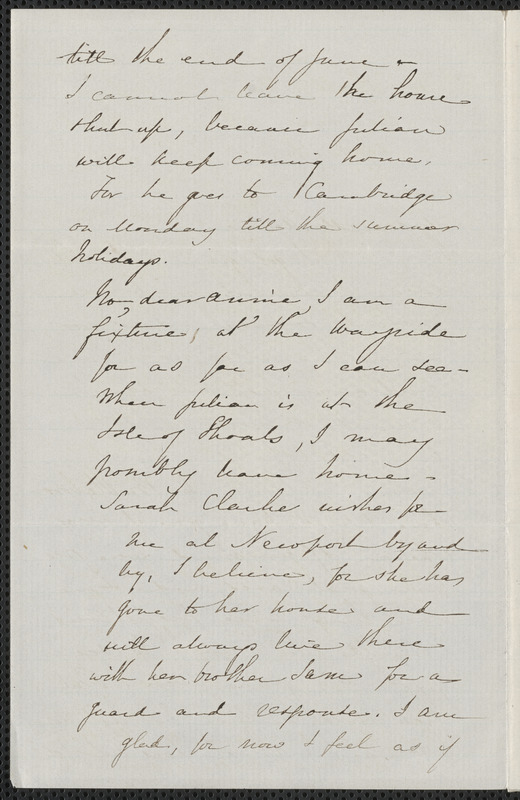 till the end of June &
I cannot leave the house
shut up, because Julian
will keep coming home.
For he goes to Cambridge
on Monday till the summer
holidays.
No, dear Annie, I am a
fixture, at the Wayside
for as far as I can see -
When Julian is at the
Isle of Shoals, I may
possibly leave home -
Sarah Clarke wishes for
me at Newport by and
by, I believe, for she has
gone to her house and
will always live there
with her brother Sam for a
guard and response. I am
glad, for now I feel as if